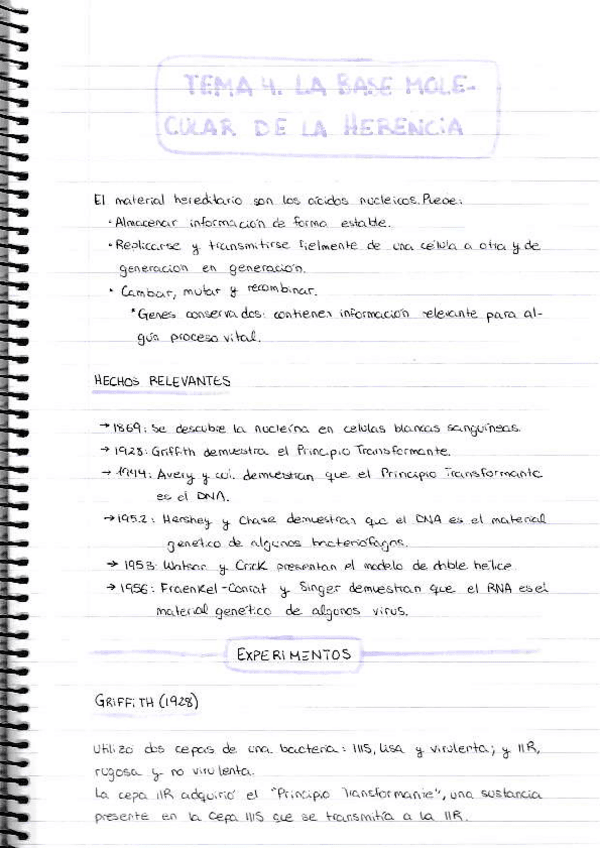 TEMA 4. LA BASE MOLE-
CULAR DE LA HERENCIA
El material hereditario son los ácidos nucleicos. Puede:
· Almacenar información de forma estable.
· Replicarse y transmitirse fielmente de una célula a otra y de
generación en generación.
· Cambiar, mutar y recombinar.
*Genes conservados: contienen información relevante para al-
gún proceso vital.
HECHOS RELEVANTES
→ 1869: Se descubre la nucleína en células blancas sanguíneas.
→ 1928: Griffith demuestra el Principio Transformante.
→ 1944: Avery y col. demuestran que el Principio Transformante
es el DNA.
→ 1952: Hershey y Chase demuestran que el DNA es el material
genético de algunos bacteriófagos.
→ 1953: Watson y Crick presentan el modelo de doble hélice.
→ 1956: Fraenkel-Conrat y Singer demuestran que el RNA es el
material genético de algunos virus.
EXPERIMENTOS
GRIFFITH (1928)
Utilizó dos cepas de una bacteria: IIIS, lisa y virulenta; y IIR,
rugosa y no virulenta.
La cepa IIR adquirió el "Principio Transformante", una sustancia
presente en la cepa IIIS que se transmitía a la IIR.